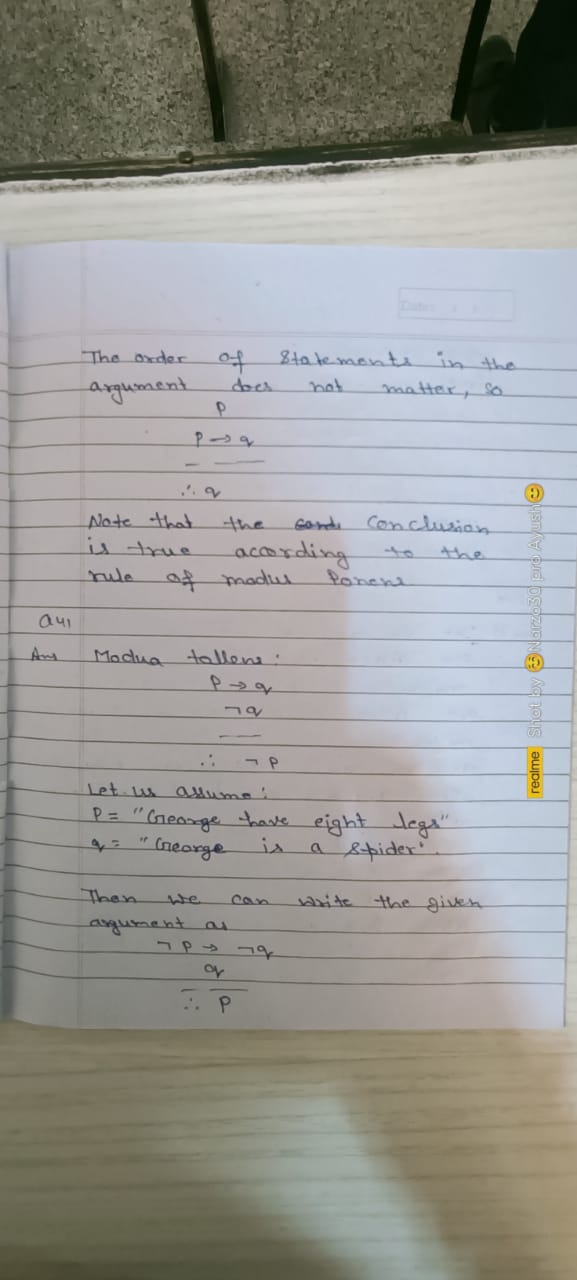 Date:
The order of statements in the
argument does not matter, so
p
p → q
∴ q
Note that the conclusion
is true according to the
rule of modus Ponens
Q41
Ans Modua tollens:
p → q
¬q
∴ ¬p
Let us assume:
P = "George have eight legs"
q = "George is a spider".
Then we can write the given
argument as
¬p → ¬q
q
∴ p
realme Shot by 😊Narzo30 pro Ayush😊